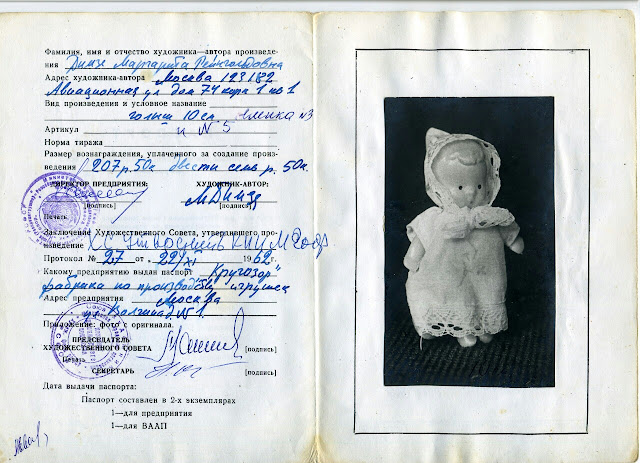 Фамилия, имя и отчество художника—автора произведе-
ния Динзе Маргарита Рейнгольдовна
Адрес художника-автора Москва 123182
Авиационная ул дом 74 корп 1 кв 1
Вид произведения и условное название
голыш 10 см.
Артикул и N 5
Норма тиража
Размер вознаграждения, уплаченного за создание произ-
ведения 207 р. 50 к двести семь р. 50к.
ДИРЕКТОР ПРЕДПРИЯТИЯ: ХУДОЖНИК-АВТОР:
МДинзе
[подпись] [подпись]
Печать
Заключение Художественного Совета, утвердившего про-
изведение ХС
Протокол № 27 от 22/XI 1962 г.
Какому предприятию выдан паспорт "Кругозор"
фабрика по производству игрушек
Адрес предприятия Москва
ул N 1
Приложение: фото с оригинала.
ПРЕДСЕДАТЕЛЬ
ХУДОЖЕСТВЕННОГО СОВЕТА [подпись]
Печать
СЕКРЕТАРЬ [подпись]
Дата выдачи паспорта:
Паспорт составлен в 2-х экземплярах
1—для предприятия
1—для ВААП